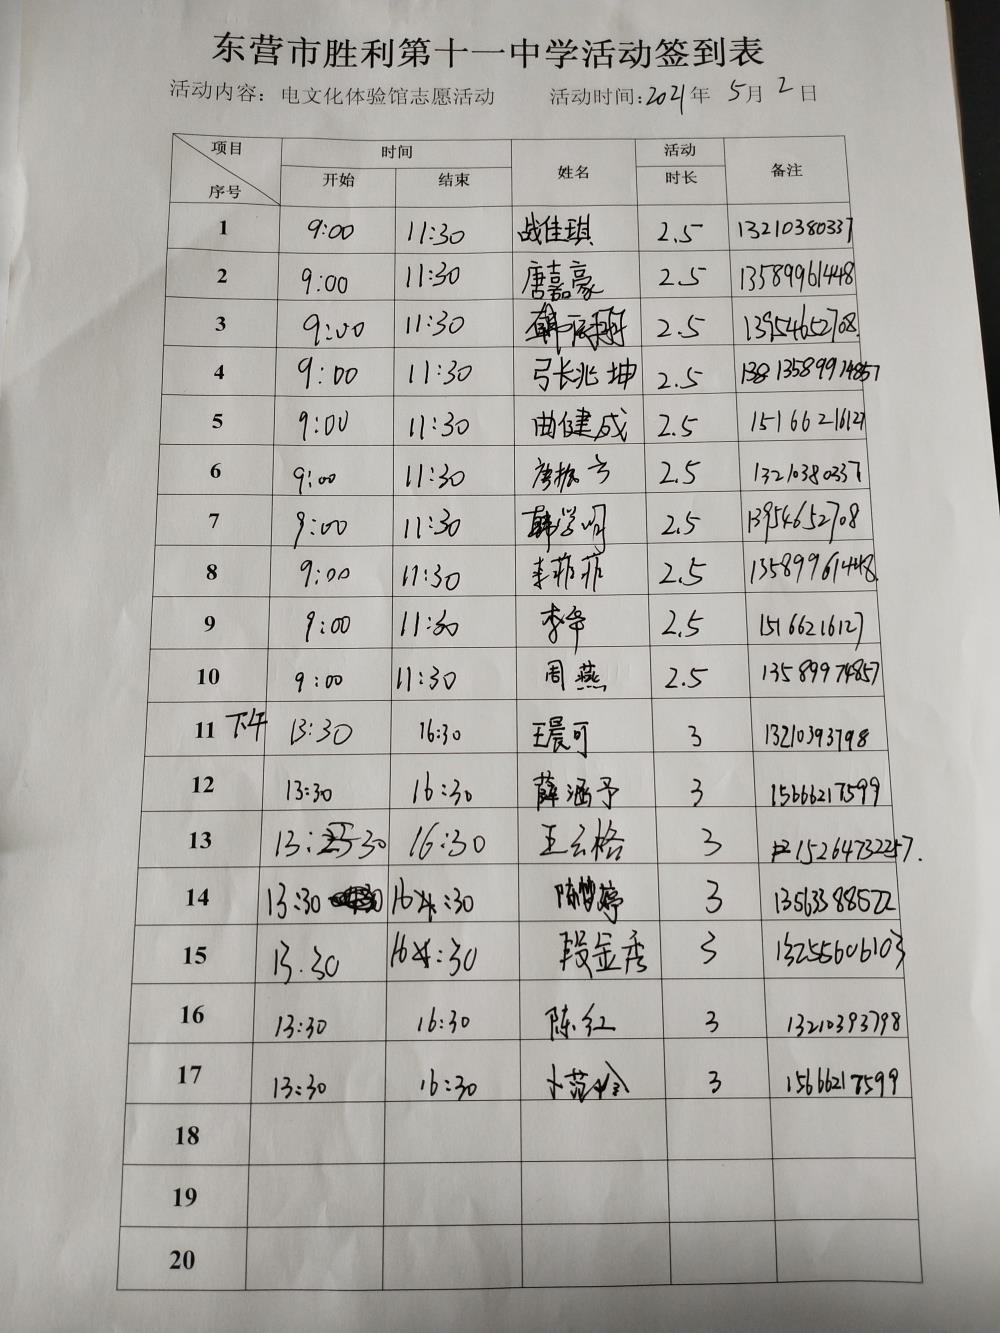 东营市胜利第十一中学活动签到表
活动内容：电文化体验馆志愿活动 活动时间:2021年 5月 2日
项目 时间 姓名 活动 备注
序号 开始 结束 时长
1 9:00 11:30 战佳琪 2.5 13210380337
2 9:00 11:30 唐嘉豪 2.5 13589961448
3 9:00 11:30 韩 2.5 13954652708.
4 9:00 11:30 张兆坤 2.5 13589974857
5 9:00 11:30 曲健成 2.5 15166216127
6 9:00 11:30 2.5 13210380337
7 9:00 11:30 韩学明 2.5 13954652708
8 9:00 11:30 李菲菲 2.5 13589961448.
9 9:00 11:30 李华 2.5 15166216127
10 9:00 11:30 周燕 2.5 13589974857
11 下午 13:30 16:30 王晨可 3 13210393798
12 13:30 16:30 薛涵予 3 15666217599
13 13:30 16:30 王云格 3 15264732257.
14 13:30 16:30 陈梦婷 3 13563388522
15 13.30 16:30 段金秀 3 13255606103
16 13:30 16:30 陈红 3 13210393798
17 13:30 16:30 3 15666217599
18
19
20